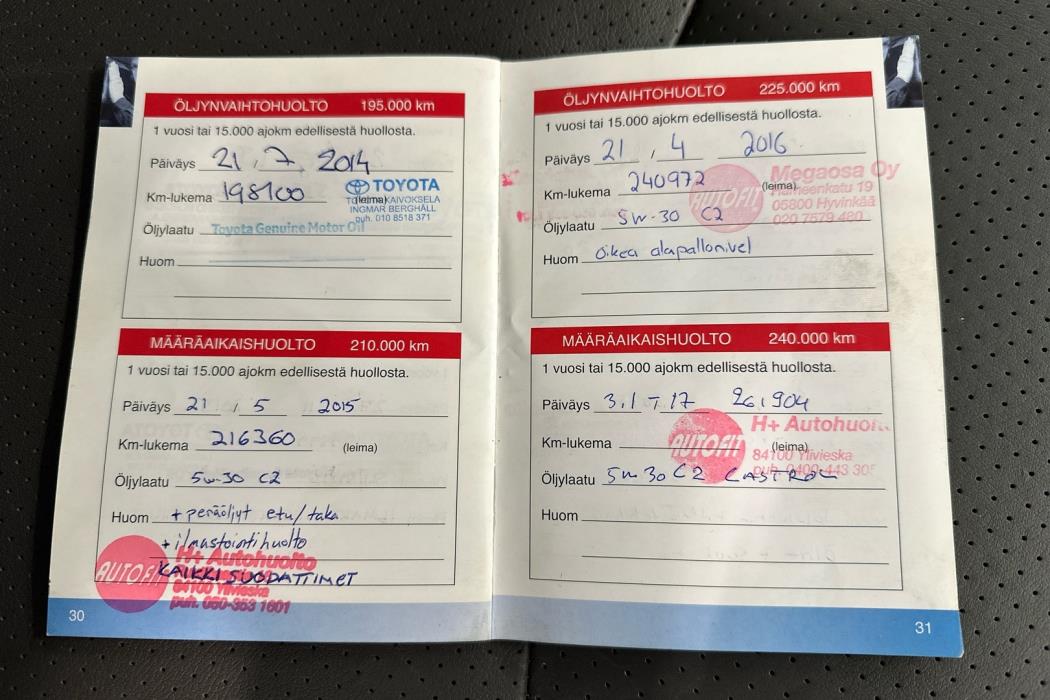 ÖLJYNVAIHTOHUOLTO 195.000 km
1 vuosi tai 15.000 ajokm edellisestä huollosta.
Päiväys 21 , 7 2014
Km-lukema 198100 (leima)
TOYOTA
KAIVOKSELA
INGMAR BERGHÄLL
puh. 010 8518 371
Öljylaatu Toyota Genuine Motor Oil
Huom
MÄÄRÄAIKAISHUOLTO 210.000 km
1 vuosi tai 15.000 ajokm edellisestä huollosta.
Päiväys 21 , 5 2015
Km-lukema 216360 (leima)
Öljylaatu 5w-30 C2
Huom + peräöljyt etu/taka
+ ilmastointihuolto
KAIKKI SUODATTIMET
AUTOFIT
H+ Autohuolto
84100 Ylivieska
puh. 050-353 1601
30
ÖLJYNVAIHTOHUOLTO 225.000 km
1 vuosi tai 15.000 ajokm edellisestä huollosta.
Päiväys 21 , 4 2016
Km-lukema 240972 (leima)
AUTOFIT
Megaosa Oy
Hämeenkatu 19
05800 Hyvinkää
020 7579 480
Öljylaatu 5w-30 C2
Huom Oikea alapallonivel
MÄÄRÄAIKAISHUOLTO 240.000 km
1 vuosi tai 15.000 ajokm edellisestä huollosta.
Päiväys 3.1 - 17
Km-lukema (leima)
AUTOFIT
H+ Autohuol
84100 Ylivieska
puh. 0400-443 305
Öljylaatu 5w 30 C2 CASTROL
Huom
31